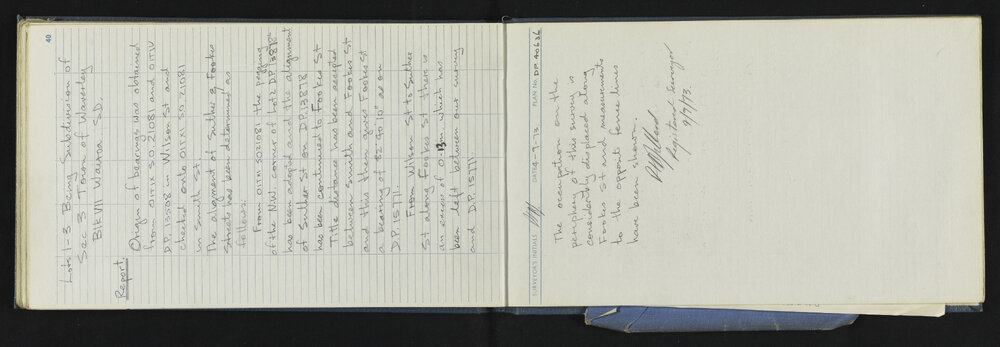 40
Lots 1-3 Being Subdivision of
Sec 3 Town of Waverley
Blk VII Wairoa S.D.
Report.
Origin of bearings was obtained
from OITIX S.O. 21081 and OITIV
D.P. 13508 in Wilson St and
checked onto OITVI S.O. 21081
in Smith St.
The alignment of Suther & Fookes
Streets has been determined as
follows:
From OITVI SO21081 the pegging
of the N.W. corner of Lot 2 D.P. 13878
has been adopted and the alignment
of Suther St on D.P. 13878
has been continued to Fookes St
Title distance has been accepted
between Smith and Fookes St
and this then gives Fookes St
a bearing of 82-40'10" as on
D.P. 15771.
From Wilson St to Suther
St along Fookes St there is
an excess of 0.13m which has
been left between our survey
and D.P. 15771.
SURVEYOR'S INITIALS DATE 4-9-73 PLAN No. DP. 40636
The occupation on the
periphery of this survey is
considerably displaced along
Fookes St and measurements
to the apponts fence lines
have been shown.
Registered Surveyor
9/9/73.